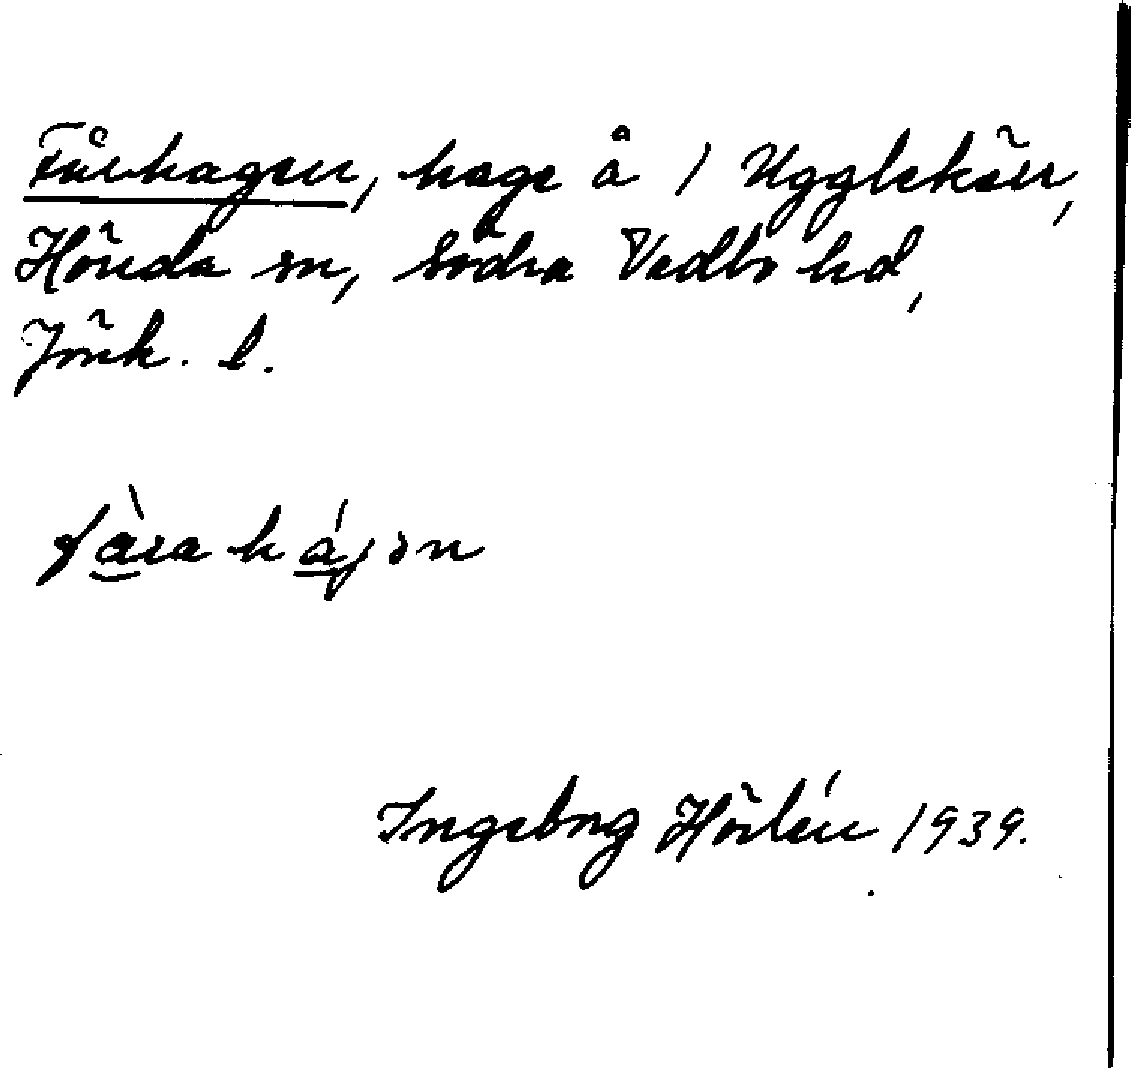 Fårhagen, hage å 1 Ugglekärr,
Höreda sn, Södra Vedbo hd,
Jönk. l.
Ingeborg Hörlén 1939.